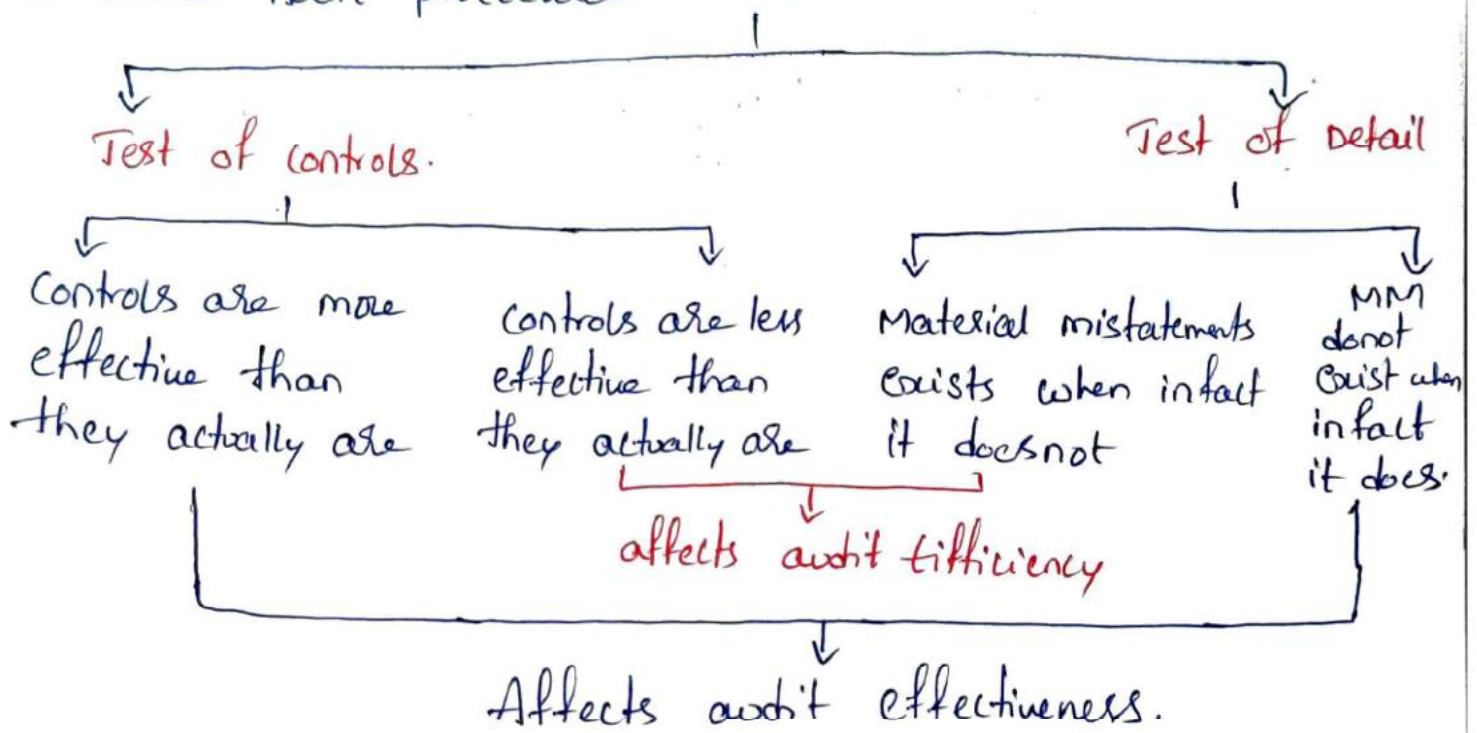 Test of controls.
Test of Detail
Controls are more
effective than
they actually are
controls are less
effective than
they actually are
Material mistatements
exists when infact
it doesnot
MM
donot
exist when
infact
it does.
affects audit tifficiency
Affects audit effectiveness.